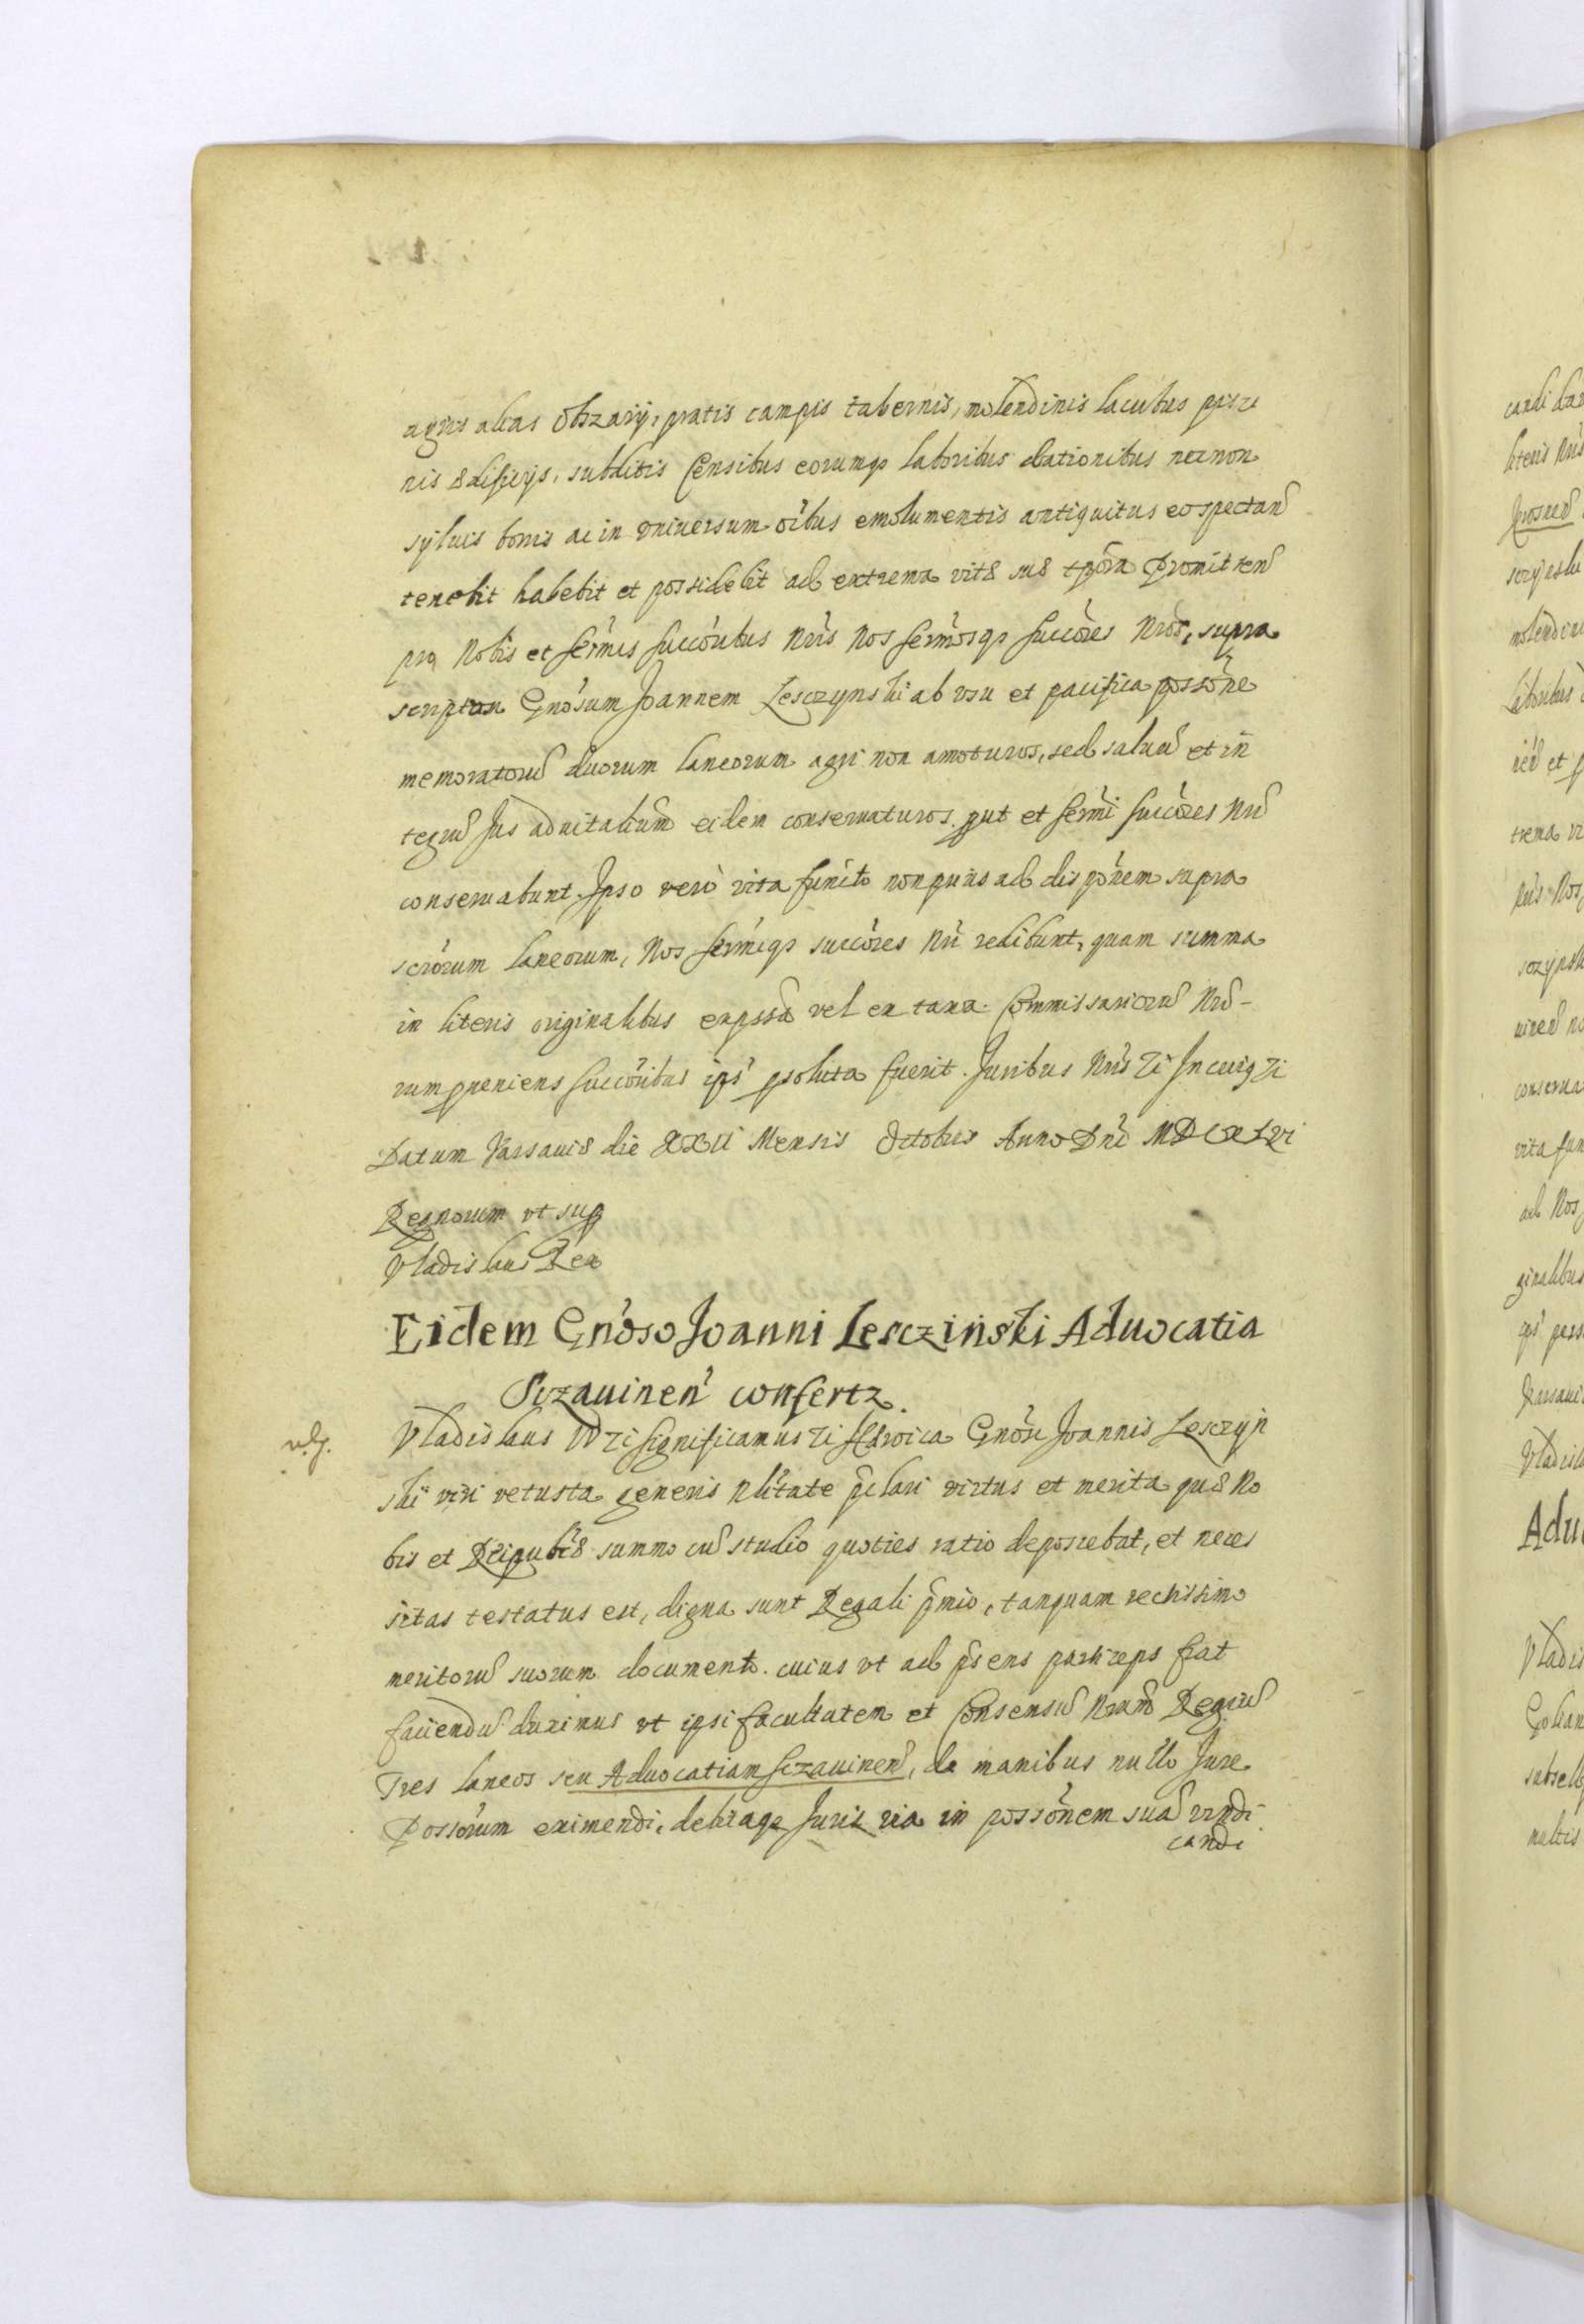 agris alias Obszary, pratis campis tabernis, molendinis lacubus pisci
nis ædificijs, subditis Censibus eorumq3 laboribus dationibus necnon
syluis boris ac in vniuersum oibus emolumentis antiquitus eo spectand
tenebit habebit et possidebit ad extrema vitæ suæ tpora Promitten
pro Nobis et Sermis Succoribus Nris Nos Sermosq3 Succores Nros, supra
scriptum Gnosum Joannem Lesczynski ab vsu et pacifica possone
memoratoru duorum laneorum agri non amoturos, sed saluu et in
tegru Jus aduitalium eidem conseruaturos. put et Sermi Succores Nri
conseruabunt. Ipso vero vita functo non prius ad disponem supra
scrorum laneorum, Nos Sermiq3 succores Nri redibunt, quam summa
in literis originalibus expssa vel ex taxa Commissarioru Nro-
rum pueniens Succoribus ips psoluta fuerit. Juribus Nris Zi In cuig Zi
Datum Varsauiæ die XXII Mensis Octobris Anno Dni MDCXLVI
Regnorum vt sup
Vladislaus Rex
Eidem Gnoso Joanni Lescziński Aduocatia
Sczauinen confertz.
Vladislaus IV Zi Significamus Zi Heroica Gnosi Joannis Lesczyn
ski viri vetusta generis Nlitate pclari virtus et merita quæ No
bis et Reipublicæ summo cu studio quoties ratio deposcebat, et neces
sitas testatus est, digna sunt Regali pmio, tanquam rectissimo
meritoru suorum documento. cuius vt ad psens particeps fiat
faciendu duximus vt ipsi facultatem et Consensu Nrum Regiu
Tres laneos seu Aduocatiam Sczauinen, de manibus nullo Jure
Possorum eximendi, debitaq3 Juris via in possonem sua vindi
candi